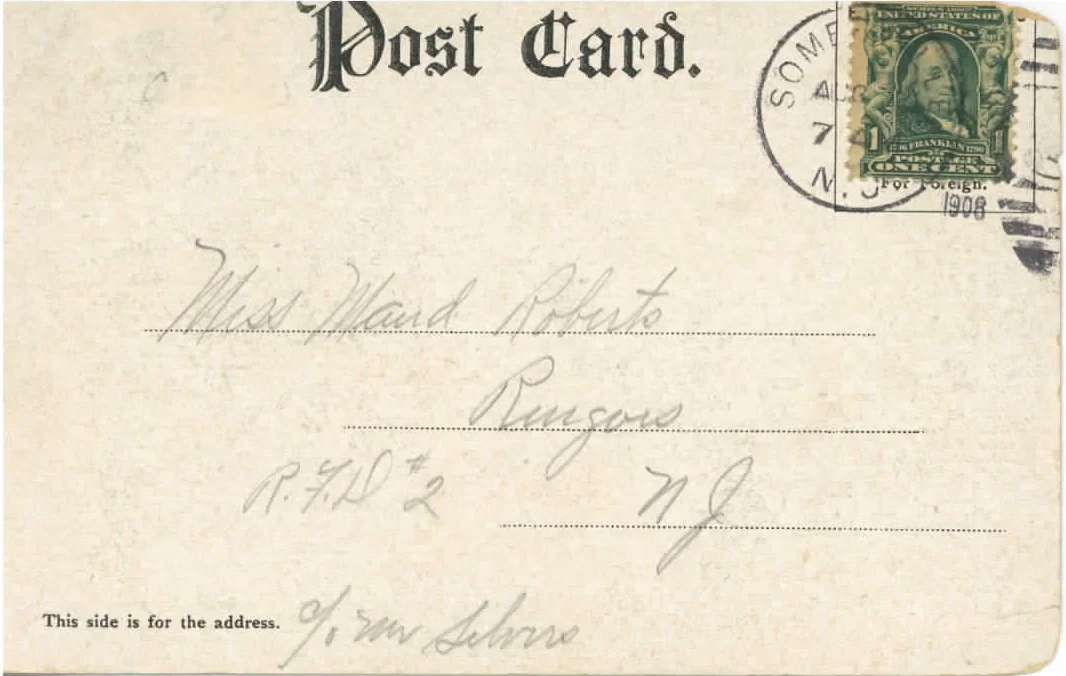 Post Card.
UNITED STATES OF
AMERICA
SOME
AUG
7
N.J
1 1
1706 FRANKLIN 1790
POSTAGE
ONE CENT
For Foreign.
1908
Miss Maud Roberts
Ringoes
R.F.D #2 N J
This side is for the address. c/o. Mr Silvers